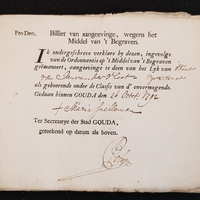 Pro Deo.
Billiet van aangeevinge, wegens het
Middel van 't Begraven.
Ik ondergeschreve verklare by dezen, ingevolge
van de Ordonnantie op 't Middel van 't Begraven
geëmaneert, aangevinge te doen van het Lyk van
als gehoorende onder de Classis van d' onvermogende.
Gedaan binnen GOUDA den 26 Octob. 1792
Ter Secretarye der Stad GOUDA,
geteekend op datum als boven.